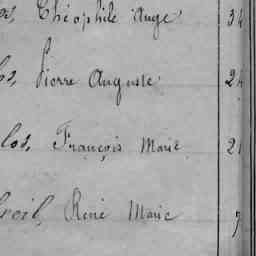 Théophile Ange 34
Pierre Auguste 24
los, François Marie 21
René Marie 7